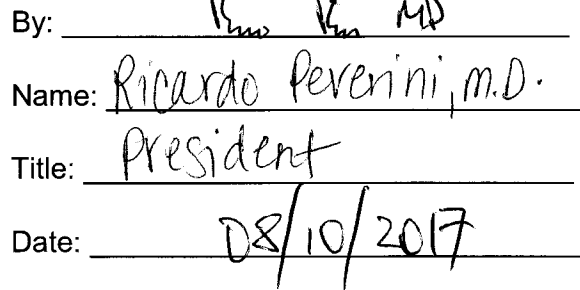 By: MD
Name: Ricardo Peverini, M.D.
Title: President
Date: 08/10/2017